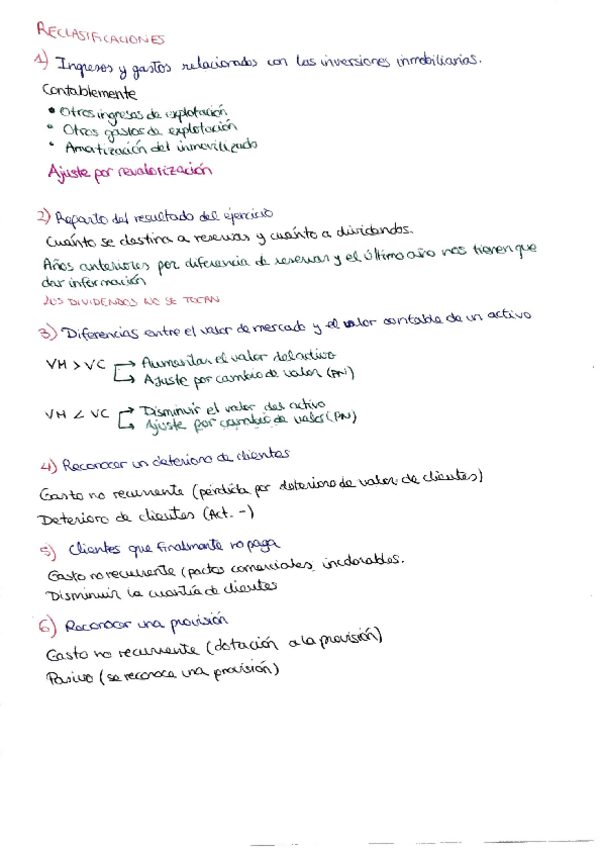 RECLASIFICACIONES
1) Ingresos y gastos relacionados con las inversiones inmobiliarias.
Contablemente
• Otros ingresos de explotación
• Otros gastos de explotación
• Amortización del inmovilizado
Ajuste por revalorización
2) Reparto del resultado del ejercicio
Cuánto se destina a reservas y cuánto a dividendos.
Años anteriores por diferencia de reservas y el último año nos tienen que
dar información
LOS DIVIDENDOS NO SE TOCAN
3) Diferencias entre el valor de mercado y el valor contable de un activo
VM > VC → Aumentar el valor del activo
→ Ajuste por cambio de valor (PN)
VM < VC → Disminuir el valor del activo
→ Ajuste por cambio de valor (PN)
4) Reconocer un deterioro de clientes
Gasto no recurrente (pérdida por deterioro de valor de clientes)
Deterioro de clientes (Act. -)
5) Clientes que finalmente no paga
Gasto no recurrente (pactos comerciales incobrables.
Disminuir la cuantía de clientes
6) Reconocer una provisión
Gasto no recurrente (dotación a la provisión)
Pasivo (se reconoce una provisión)